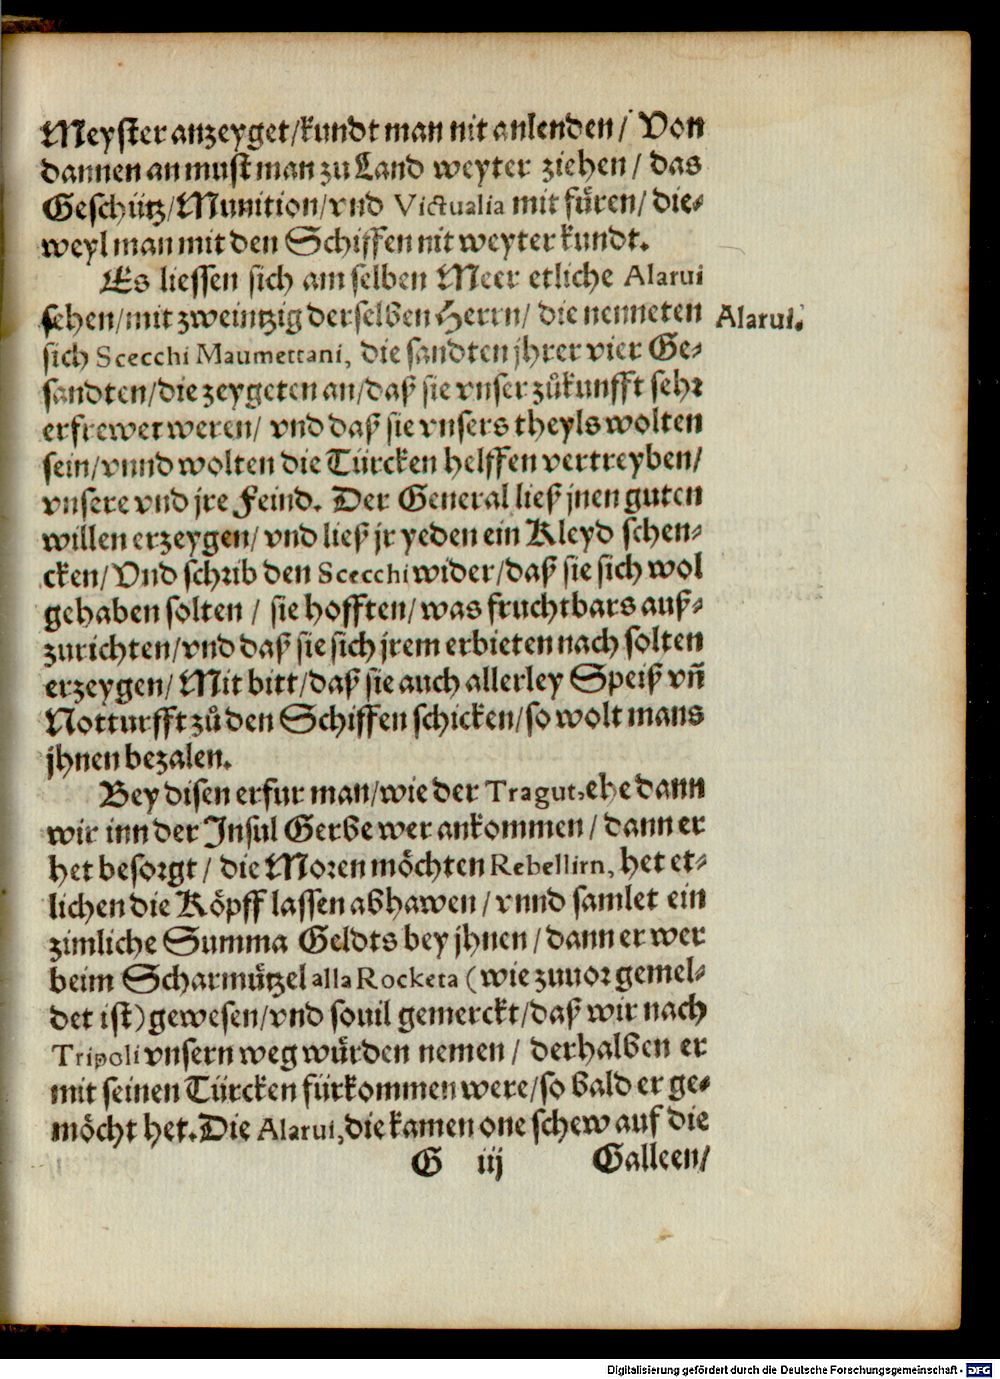 Meyster anzeyget/kundt man nit anlenden/ Von
dannen an must man zu Land weyter ziehen/ das
Geschütz/Munition/vnd Victualia mit füren/ die-
weyl man mit den Schiffen nit weyter kundt.
Es liessen sich am selben Meer etliche Alarui
sehen/mit zweintzig derselben Herrn/ die nenneten
Alarui.
sich Scecchi Maumettani, die sandten jhrer vier Ge-
sandten/die zeygeten an/daß sie vnser zůkunfft sehr
erfrewet weren/ vnd daß sie vnsers theyls wolten
sein/vnnd wolten die Türcken helffen vertreyben/
vnsere vnd jre Feind. Der General ließ jnen guten
willen erzeygen/ vnd ließ jr yeden ein Kleyd schen-
cken/ Vnd schrib den Scecchi wider/daß sie sich wol
gehaben solten / sie hofften/ was fruchtbars auß-
zurichten/vnd daß sie sich jrem erbieten nach solten
erzeygen/ Mit bitt/daß sie auch allerley Speiß vñ
Notturfft zů den Schiffen schicken/so wolt mans
jhnen bezalen.
Bey disen erfur man/wie der Tragut, ehe dann
wir inn der Insul Gerbe wer ankommen / dann er
het besorgt / die Moren möchten Rebellirn, het et-
lichen die Köpff lassen abhawen / vnnd samlet ein
zimliche Summa Geldts bey jhnen / dann er wer
beim Scharmützel alla Rocketa (wie zuuor gemel-
det ist) gewesen/vnd souil gemerckt/daß wir nach
Tripoli vnsern weg würden nemen / derhalben er
mit seinen Türcken fürkommen were/so bald er ge-
möcht het. Die Alarui, die kamen one schew auf die
G iij Galleen/
Digitalisierung gefördert durch die Deutsche Forschungsgemeinschaft - DFG